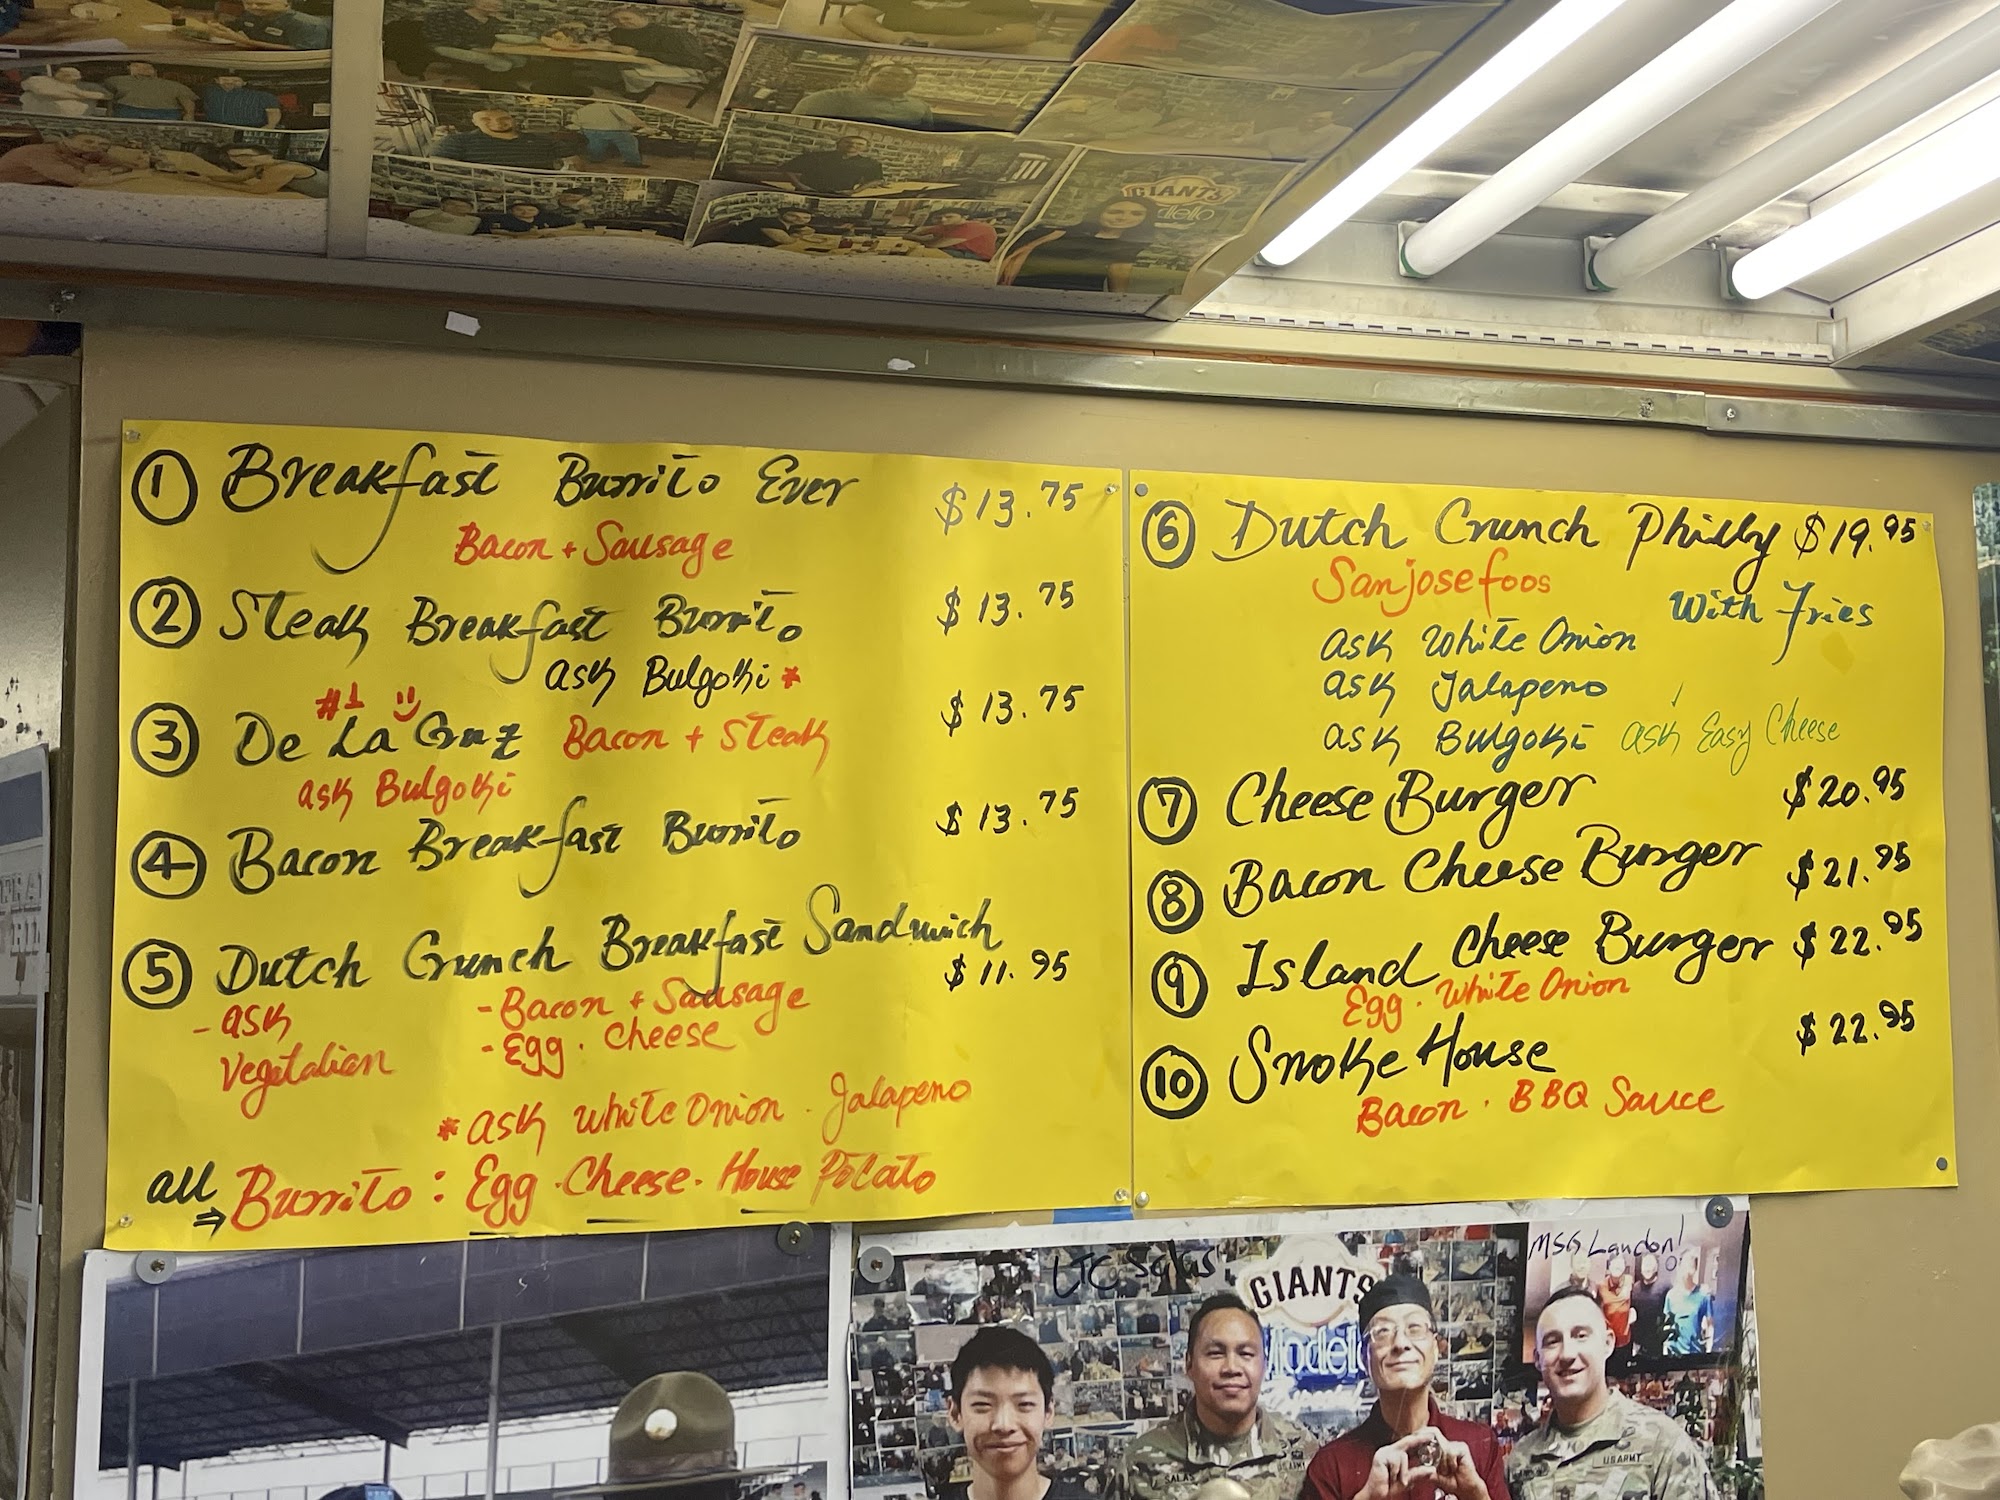 GIANTS
① Breakfast Burrito Ever $13.75
Bacon + Sausage
② Steak Breakfast Burrito $13.75
ask Bulgoki *
#1
③ De La Cruz Bacon + Steak $13.75
ask Bulgoki
④ Bacon Breakfast Burrito $13.75
⑤ Dutch Crunch Breakfast Sandwich
$11.95
- ask
Vegetalian
- Bacon + Sausage
- Egg . Cheese
* ask White Onion . Jalapeno
all ⇒ Burrito : Egg . Cheese . House Potato
⑥ Dutch Crunch Philly $19.95
Sanjosefoos
With Fries
ask White Onion
ask Jalapeno
ask Bulgoki ask Easy Cheese
⑦ Cheese Burger $20.95
⑧ Bacon Cheese Burger $21.95
⑨ Island Cheese Burger $22.95
Egg . White Onion
⑩ Smoke House $22.95
Bacon . BBQ Sauce
LTC Salas
MSG Landon!
GIANTS
Modelo
SALAS
U.S. ARMY
U.S. ARMY